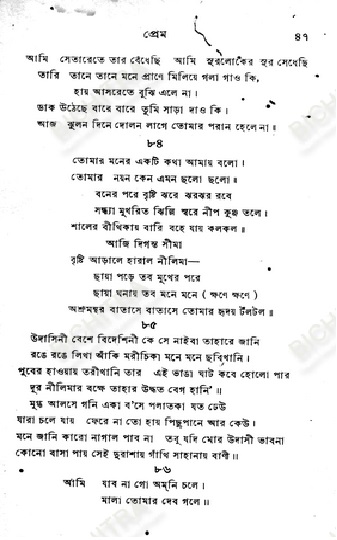 প্রেম ৪৭
আমি সেতারেতে তার বেঁধেছি আমি সুরলোকের সুর সেধেছি
তারি তানে তানে মনে প্রাণে মিলিয়ে গলা গাও কি,
হায় আসরেতে বুঝি এলে না।
ডাক উঠেছে বারে বারে তুমি সাড়া দাও কি।
আজ ঝুলন দিনে দোলন লাগে তোমার পরান হেলে না॥
৮৪
তোমার মনের একটি কথা আমায় বলো।
তোমার নয়ন কেন এমন ছলো ছলো॥
বনের পরে বৃষ্টি ঝরে ঝরঝর রবে
সন্ধ্যা মুখরিত ঝিল্লি স্বরে নীপ কুঞ্জ তলে।
শালের বীথিকায় বারি বহে যায় কলকল।
আজি দিগন্ত সীমা
বৃষ্টি আড়ালে হারাল নীলিমা—
ছায়া পড়ে তব মুখের পরে
ছায়া ঘনায় তব মনে মনে (ক্ষণে ক্ষণে)
অশ্রুমন্থর বাতাসে বাতাসে তোমার হৃদয় টলটল॥
৮৫
উদাসিনী বেশে বিদেশিনী কে সে নাইবা তাহারে জানি
রঙে রঙে লিখা আঁকি মরীচিকা মনে মনে ছবিখানি।
পুবের হাওয়ায় তরীখানি তার এই ভাঙা ঘাট কবে হোলো পার
দূর নীলিমার বক্ষে তাহার উদ্ধত বেগ হানি॥
মুগ্ধ আলসে গনি একা ব'সে পলাতকা যত ঢেউ
যারা চলে যায় ফেরে না তো হায় পিছুপানে আর কেউ।
মনে জানি কারো নাগাল পাব না তবু যদি মোর উদাসী ভাবনা
কোনো বাসা পায় সেই দুরাশায় গাঁথি সাহানায় বাণী॥
৮৬
আমি যাব না গো অমনি চলে।
মালা তোমার দেব গলে॥